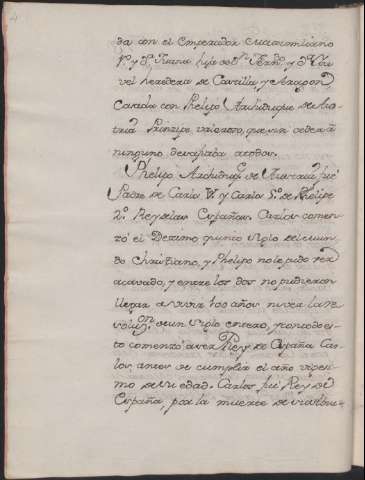 da con el Emperador Maximiliano
1º. y Dª. Juana hija de Dⁿ. Ferndº. y Dª. Ysa-
vel heredera de Castilla, y Aragon
Casada con Phelipe Archiduque de Aus-
tria Principe, valeroso, que sin ceder à
ninguno desafiaba a todos.
Phelipe Archiduqᵉ. de Austria, fué
Padre de Carlos Vº. y Carlos 5º. de Phelipe
2º. Reyes de las Españas. Carlos comen-
zó el Decimo quinto siglo del mun-
do Christiano, y Phelipo no le pudo ver
acavado, y entre los dos no pudieron
llegar a vivir 100 años nunca la re-
voluⁿ. de un siglo entero, y con todo es-
to comenzó a ser Rey de España Car-
los, antes de cumplir el año vigesi-
mo de su edad. Carlos fué Rey de
España, por la muerte de su Abue-